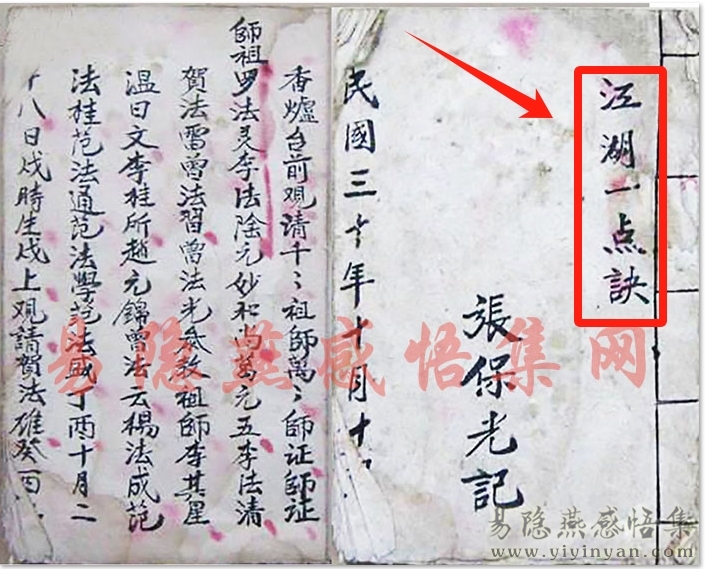 江湖一点訣
張保光記
民國三十年十月十
香爐台前观清千〻祖師萬〻師证師证
師祖罗法灵李法除元妙和尚萬元五李法清
賀法雷曾法習曾法光叅教祖師李其星
温日文李桂所趙元錦曾法云楊法成范
法桂范法通范法學范法盛丁酉十月二
十八日戌時生戌上观請賀法雄癸酉
易隐燕感悟集网
易隐燕感悟集
www.yiyinyan.com